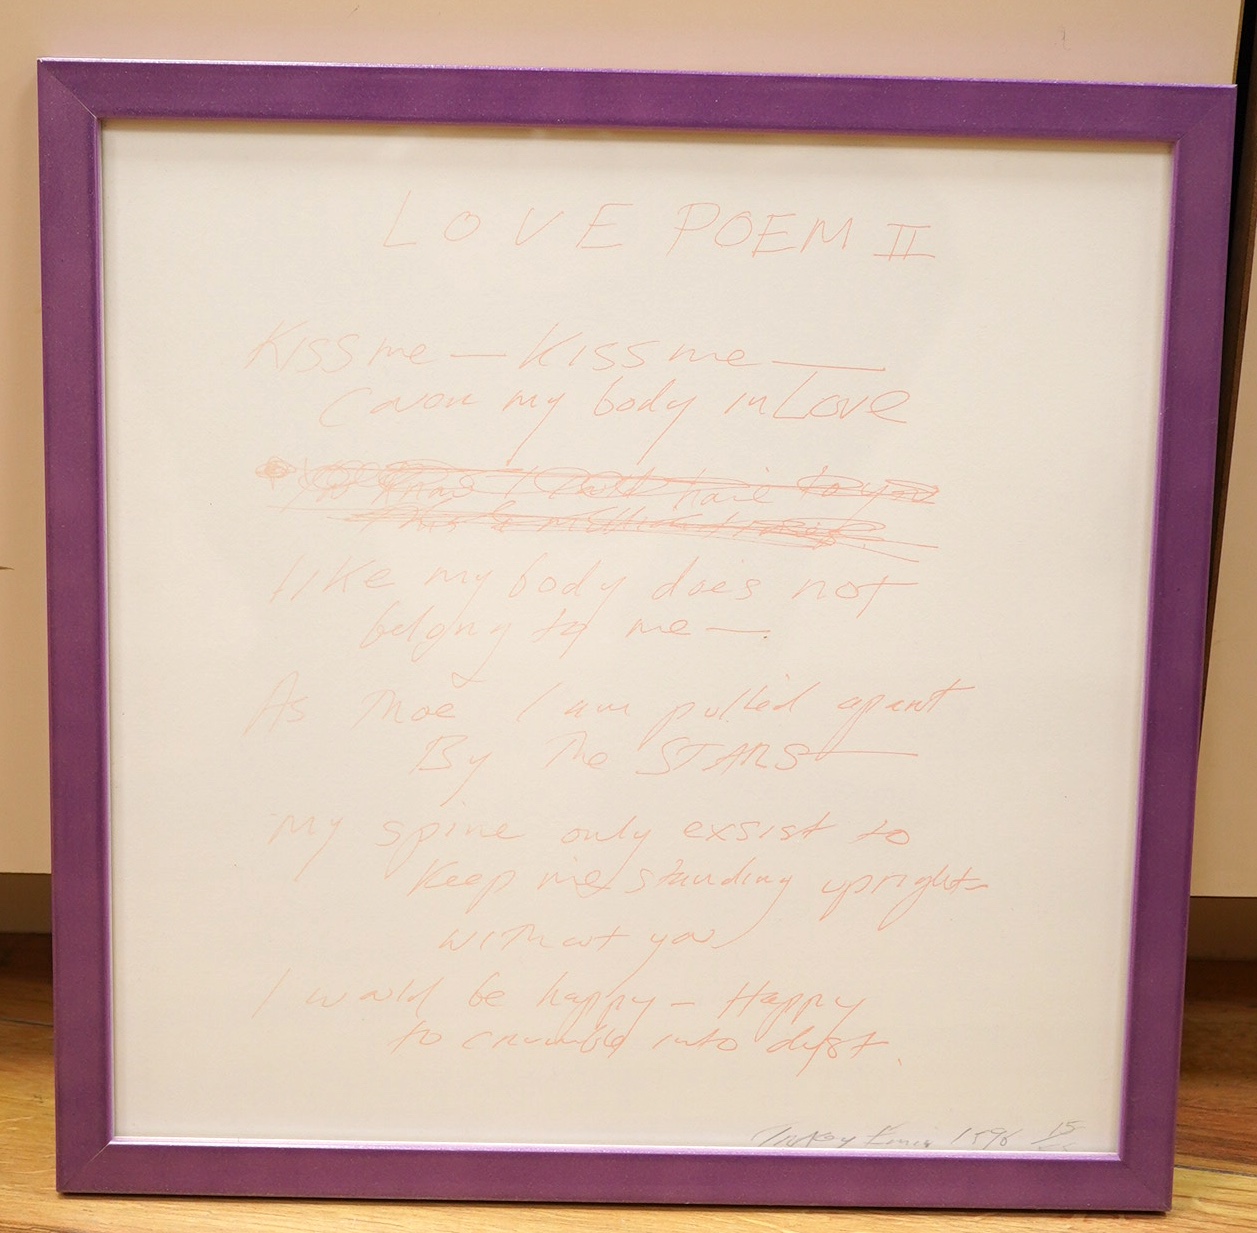 LOVE POEM II
Kiss me — Kiss me —
Cover my body in Love
to you
like my body does not
belong to me —.
As Thoe I am pulled apart
By The STARS
My spine only exsist to
Keep me standing upright
without you
I would be happy — Happy
to crumble into dust.
Tracey Emin 1996 15